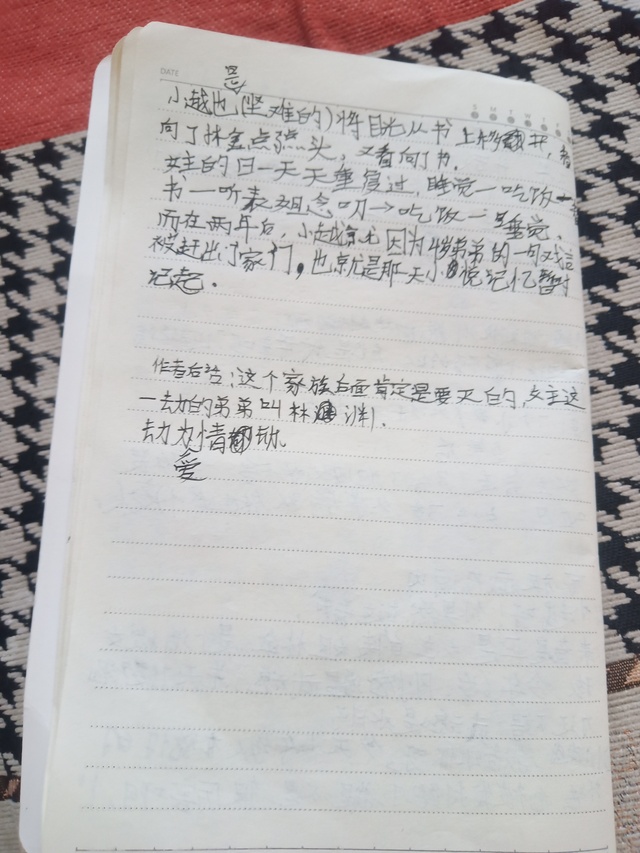 DATE
S M T W T F
小越也(坚难的)将目光从书上移开,看
向了林宝点点头,又看向了书。
女主的日一天天重复过,睡觉一吃饭一看
书一听表姐念叨→吃饭一睡觉。
而在两年后,小越因为弟弟的一句戏言
被赶出了家门,也就是那一天小悦记忆暂时
记起.
作者白告:这个家族后面肯定是要灭的,女主这
一动的弟弟叫林 渊.
动为情动.
爱